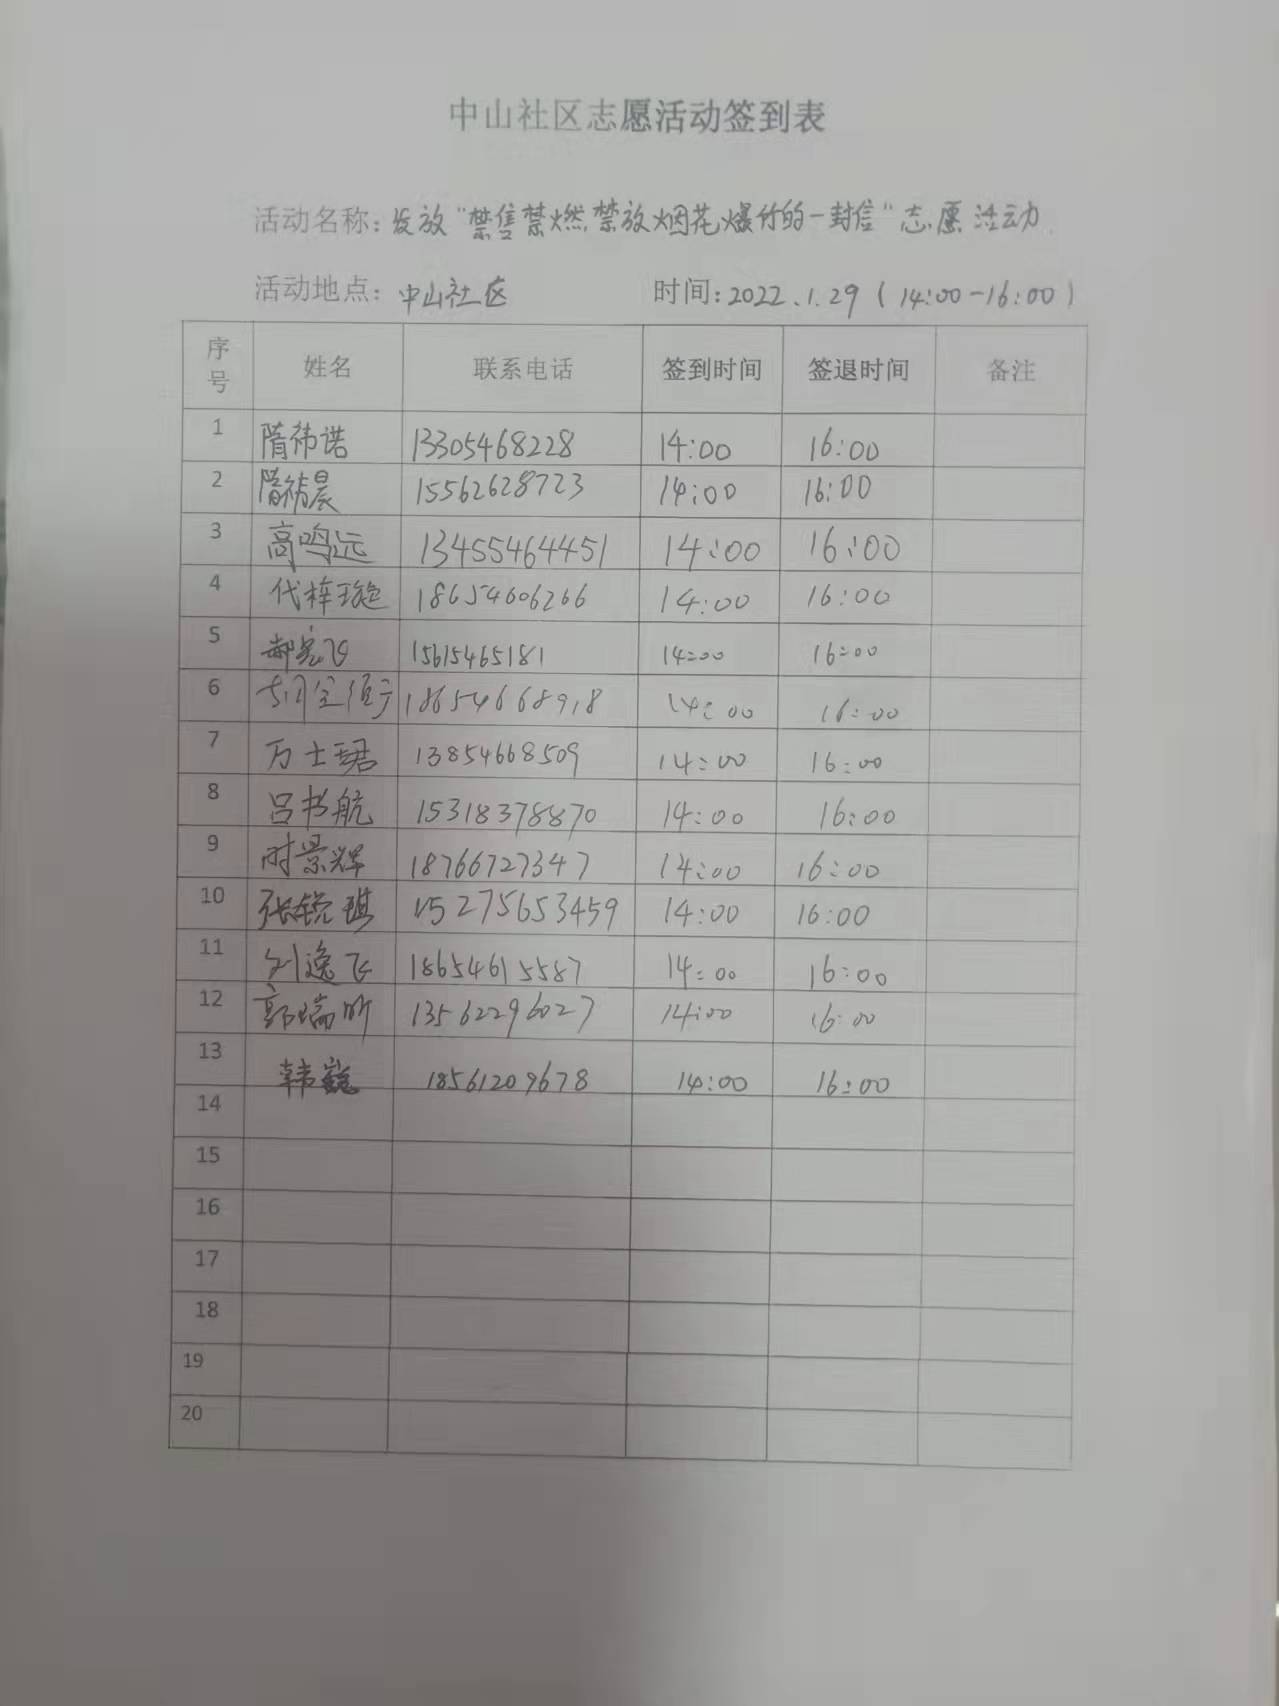 中山社区志愿活动签到表
活动名称：发放“禁售禁燃禁放烟花爆竹的一封信”志愿活动
活动地点：中山社区 时间：2022.1.29（14:00-16:00）
序号 姓名 联系电话 签到时间 签退时间 备注
1 隋祎诺 13305468228 14:00 16:00
2 隋祎晨 15562628723 14:00 16:00
3 高鸣远 13455464451 14:00 16:00
4 代梓璇 18654606266 14:00 16:00
5 郝飞 15615465181 14:00 16:00
6 18654668918 14:00 16:00
7 万士珺 13854668509 14:00 16:00
8 吕书航 15318378870 14:00 16:00
9 时景辉 18766727347 14:00 16:00
10 张锐琪 15275653459 14:00 16:00
11 刘逸飞 18654615587 14:00 16:00
12 郭瑞昕 13562296027 14:00 16:00
13 韩巍 18561209678 14:00 16:00
14
15
16
17
18
19
20